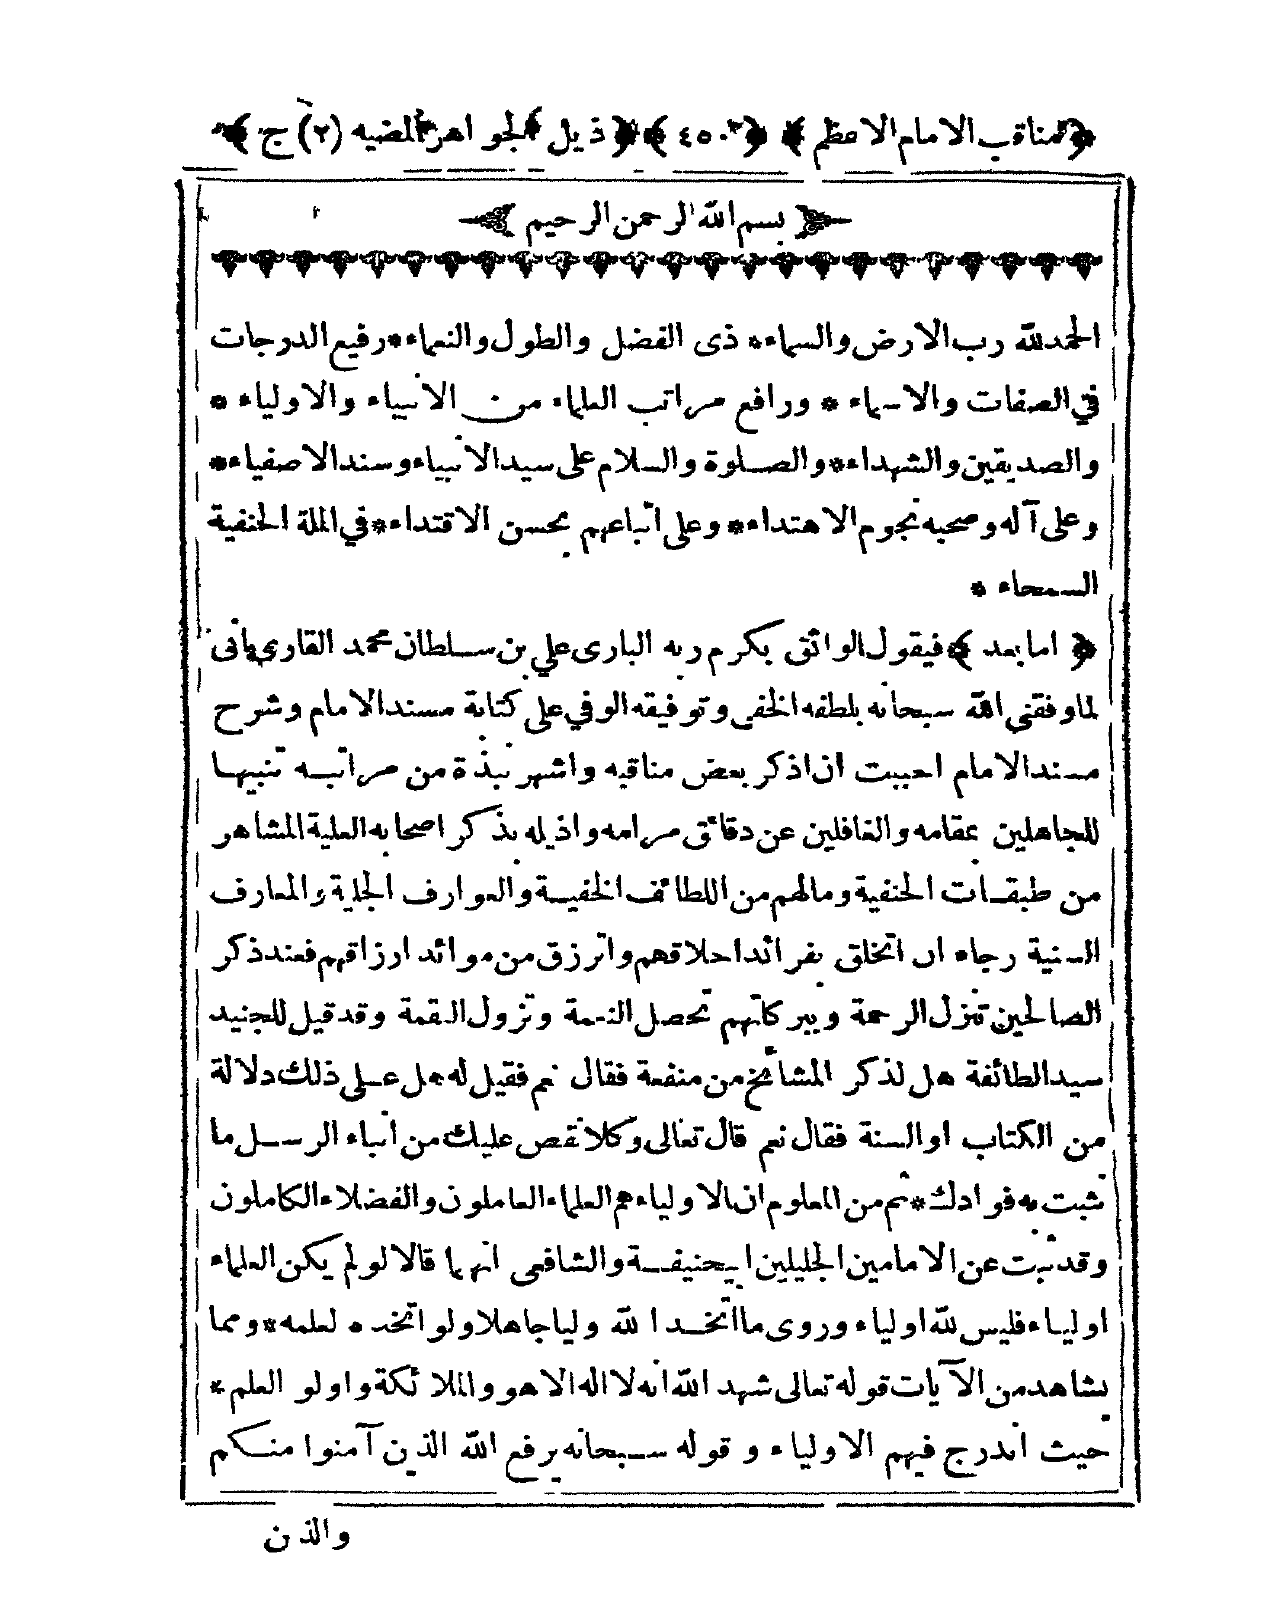 ﴿مناقب الامام الاعظم﴾ ﴿٤٥٠﴾ ﴿ذيل الجواهر المضيه (٢) ج﴾
بسم الله الرحمن الرحيم
الحمد لله رب الارض والسماء* ذى الفضل والطول والنعماء* رفيع الدرجات
في الصفات والاسماء * ورافع مراتب العلماء من الانبياء والاولياء *
والصديقين والشهداء* والصلوة والسلام على سيد الانبياء وسند الاصفياء*
وعلى آله وصحبه نجوم الاهتداء* وعلى اتباعهم بحسن الاقتداء* في الملة الحنفية
السمحاء *
﴿ اما بعد ﴾ فيقول الواثق بكرم ربه البارى على بن سلطان محمد القارى بانى
لما وفقنى الله سبحانه بلطفه الخفى وتوفيقه الوفي على كتابة مسند الامام وشرح
مسند الامام احببت ان اذكر بعض مناقبه واشهر نبذة من مراتبه تنبيها
للجاهلين بمقامه والغافلين عن دقائق مرامه واذيله بذكر اصحابه العلية المشاهر
من طبقات الحنفية ومالهم من اللطائف الخفية والعوارف الجلية والمعارف
السنية رجاء ان اتخلق بفرائد اخلاقهم واترزق من موائد ارزاقهم فعند ذكر
الصالحين تنزل الرحمة وببركاتهم تحصل النعمة وتزول النقمة وقد قيل للجنيد
سيد الطائفة هل لذكر المشائخ من منفعة فقال نعم فقيل له هل على ذلك دلالة
من الكتاب او السنة فقال نعم قال تعالى وكلا نقص عليك من انباء الرسل ما
نثبت به فوادك* ثم من المعلوم ان الاولياء هم العلماء العاملون والفضلاء الكاملون
وقد ثبت عن الامامين الجليلين ابيحنيفة والشافعى انهما قالا لو لم يكن العلماء
اولياء فليس لله اولياء وروى ما اتخذ الله وليا جاهلا ولو اتخذه لعلمه* ومما
يشاهد من الآيات قوله تعالى شهد الله انه لا اله الا هو والملائكة واولو العلم *
حيث اندرج فيهم الاولياء وقوله سبحانه يرفع الله الذين آمنوا منكم
والذن